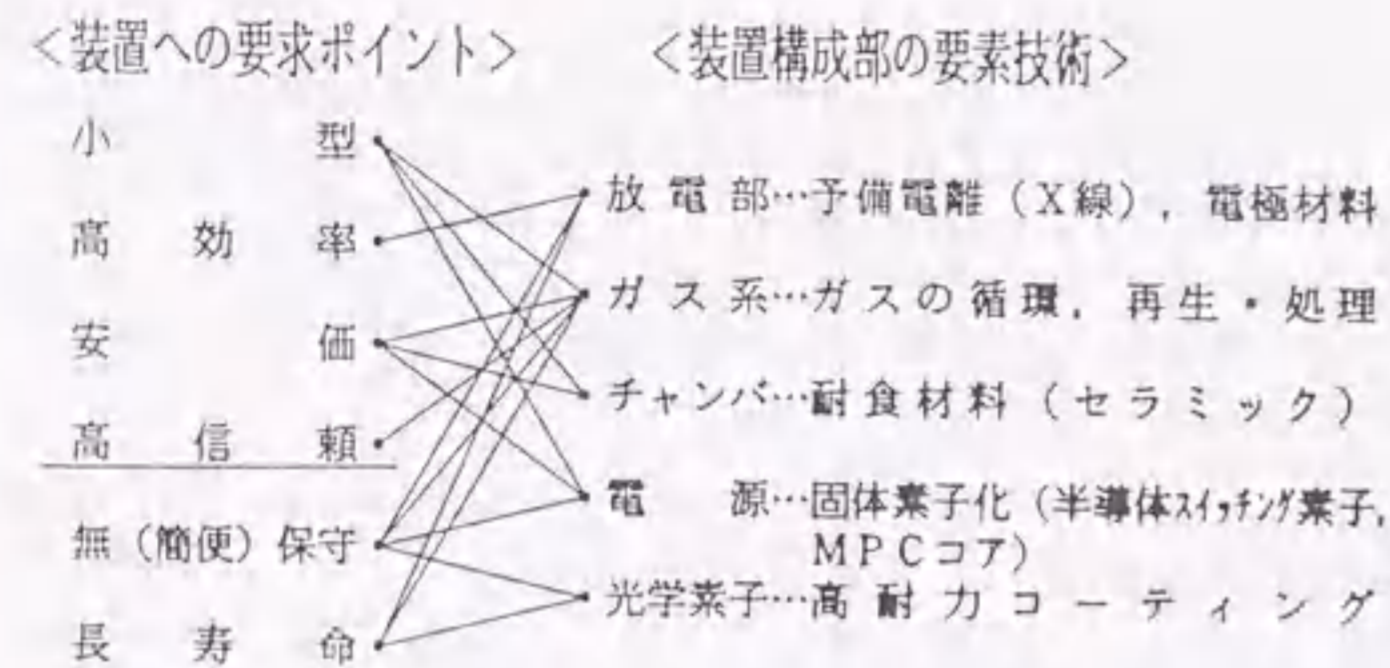 <装置への要求ポイント>
<装置構成部の要素技術>
小型
高効率
安価
高信頼
無(簡便)保守
長寿命
放電部…予備電離(X線),電極材料
ガス系…ガスの循環,再生・処理
チャンバ…耐食材料(セラミック)
電源…固体素子化(半導体スイッチング素子,
MPCコア)
光学素子…高耐力コーティング